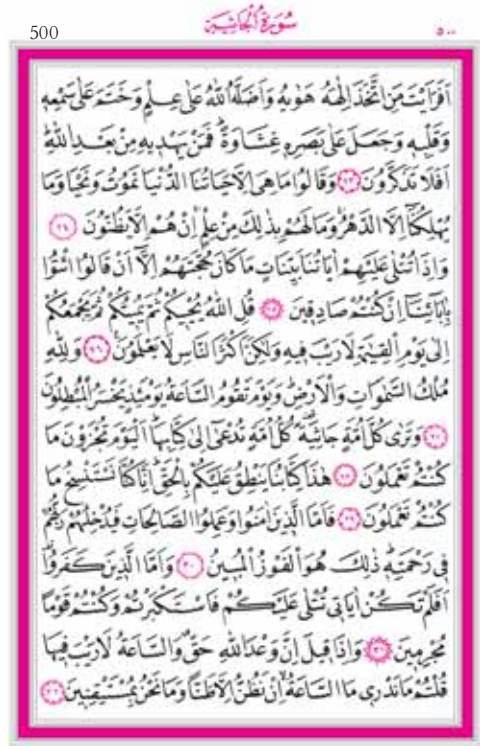 500 سُورَةُ الْجَاثِيَةِ ٥٠٠
اَفَرَاَيْتَ مَنِ اتَّخَذَ اِلٰهَهُ هَوٰيهُ وَاَضَلَّهُ اللّٰهُ عَلٰى عِلْمٍ وَخَتَمَ عَلٰى سَمْعِهٖ
وَقَلْبِهٖ وَجَعَلَ عَلٰى بَصَرِهٖ غِشَاوَةًۜ فَمَنْ يَهْدٖيهِ مِنْ بَعْدِ اللّٰهِۜ
اَفَلَا تَذَكَّرُونَ ﴿٢٣﴾ وَقَالُوا مَا هِيَ اِلَّا حَيَاتُنَا الدُّنْيَا نَمُوتُ وَنَحْيَا وَمَا
يُهْلِكُنَٓا اِلَّا الدَّهْرُۚ وَمَا لَهُمْ بِذٰلِكَ مِنْ عِلْمٍۚ اِنْ هُمْ اِلَّا يَظُنُّونَ ﴿٢٤﴾
وَاِذَا تُتْلٰى عَلَيْهِمْ اٰيَاتُنَا بَيِّنَاتٍ مَا كَانَ حُجَّتَهُمْ اِلَّٓا اَنْ قَالُوا ائْتُوا
بِاٰبَٓائِنَٓا اِنْ كُنْتُمْ صَادِقٖينَ ﴿٢٥﴾ قُلِ اللّٰهُ يُحْيٖيكُمْ ثُمَّ يُمٖيتُكُمْ ثُمَّ يَجْمَعُكُمْ
اِلٰى يَوْمِ الْقِيٰمَةِ لَا رَيْبَ فٖيهِ وَلٰكِنَّ اَكْثَرَ النَّاسِ لَا يَعْلَمُونَ ﴿٢٦﴾ وَلِلّٰهِ
مُلْكُ السَّمٰوَاتِ وَالْاَرْضِۜ وَيَوْمَ تَقُومُ السَّاعَةُ يَوْمَئِذٍ يَخْسَرُ الْمُبْطِلُونَ
﴿٢٧﴾ وَتَرٰى كُلَّ اُمَّةٍ جَاثِيَةً۠ كُلُّ اُمَّةٍ تُدْعٰٓى اِلٰى كِتَابِهَاۜ اَلْيَوْمَ تُجْزَوْنَ مَا
كُنْتُمْ تَعْمَلُونَ ﴿٢٨﴾ هٰذَا كِتَابُنَا يَنْطِقُ عَلَيْكُمْ بِالْحَقِّۜ اِنَّا كُنَّا نَسْتَنْسِخُ مَا
كُنْتُمْ تَعْمَلُونَ ﴿٢٩﴾ فَاَمَّا الَّذٖينَ اٰمَنُوا وَعَمِلُوا الصَّالِحَاتِ فَيُدْخِلُهُمْ رَبُّهُمْ
فٖي رَحْمَتِهٖۜ ذٰلِكَ هُوَ الْفَوْزُ الْمُبٖينُ ﴿٣٠﴾ وَاَمَّا الَّذٖينَ كَفَرُوا
اَفَلَمْ تَكُنْ اٰيَاتٖي تُتْلٰى عَلَيْكُمْ فَاسْتَكْبَرْتُمْ وَكُنْتُمْ قَوْمًا
مُجْرِمٖينَ ﴿٣١﴾ وَاِذَا قٖيلَ اِنَّ وَعْدَ اللّٰهِ حَقٌّ وَالسَّاعَةُ لَا رَيْبَ فٖيهَا
قُلْتُمْ مَا نَدْرٖي مَا السَّاعَةُۙ اِنْ نَظُنُّ اِلَّا ظَنًّا وَمَا نَحْنُ بِمُسْتَيْقِنٖينَ ﴿٣٢﴾